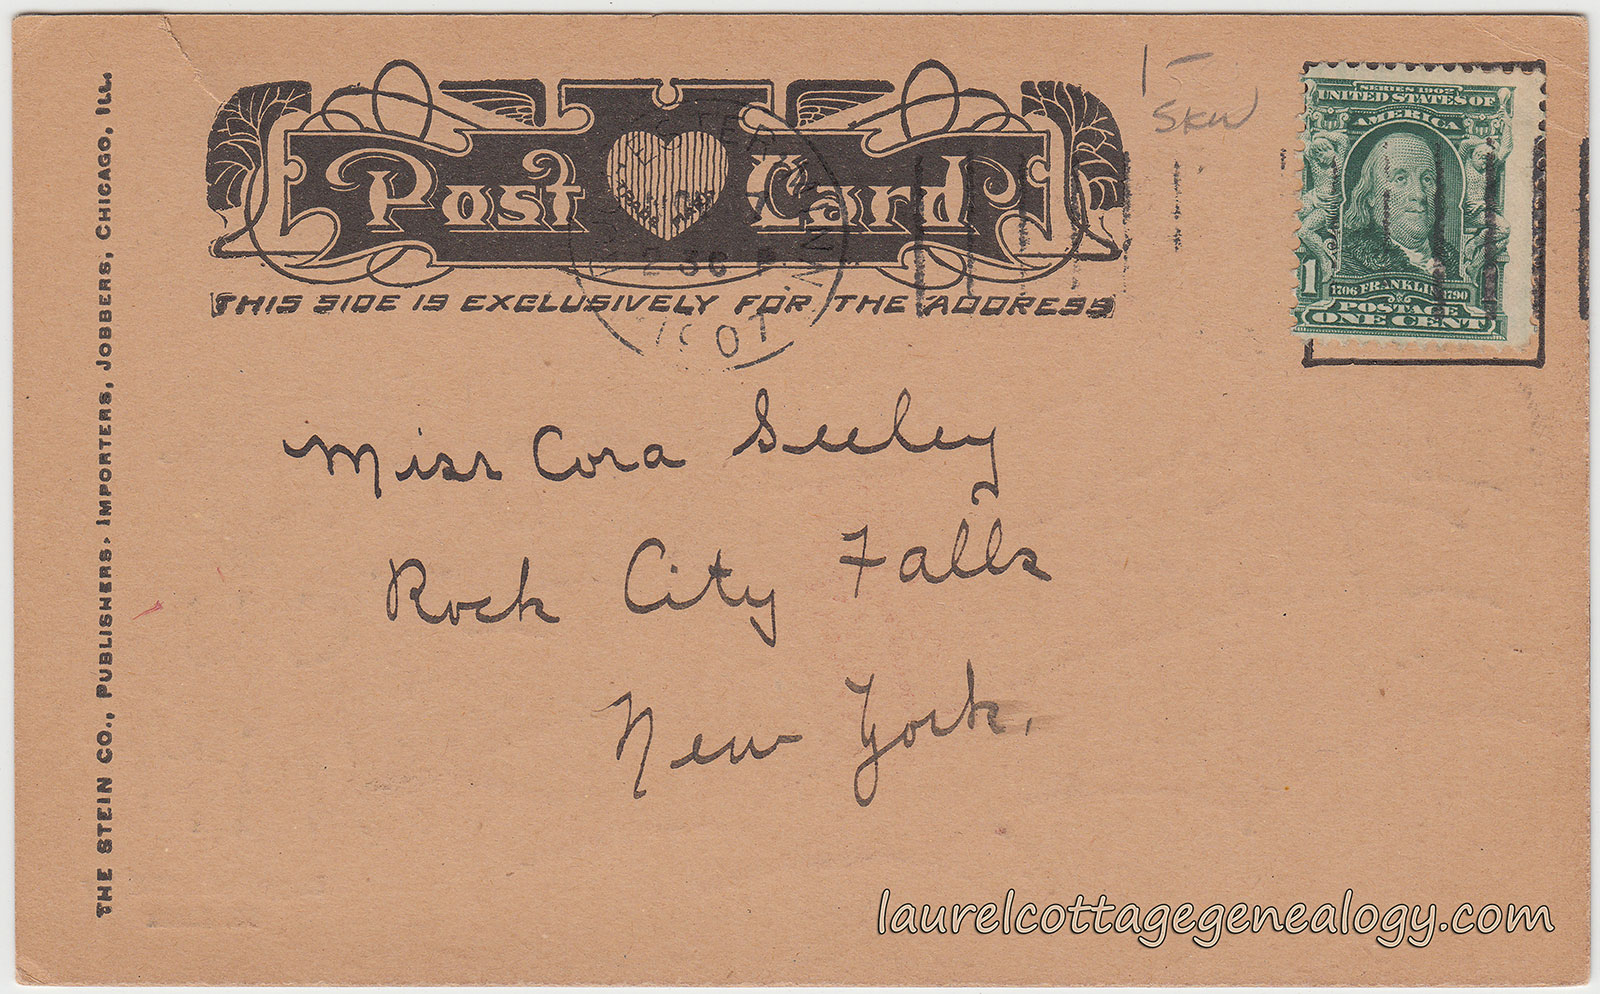 THE STEIN CO., PUBLISHERS, IMPORTERS, JOBBERS, CHICAGO, ILL.
Post Card
THIS SIDE IS EXCLUSIVELY FOR THE ADDRESS
15
SKW
SERIES 1902
UNITED STATES OF
AMERICA
1
1706 FRANKLIN 1790
POSTAGE
ONE CENT
ESTER MINN
7
2 36 P
Miss Cora Seeley
Rock City Falls
New York.
laurelcottagegenealogy.com